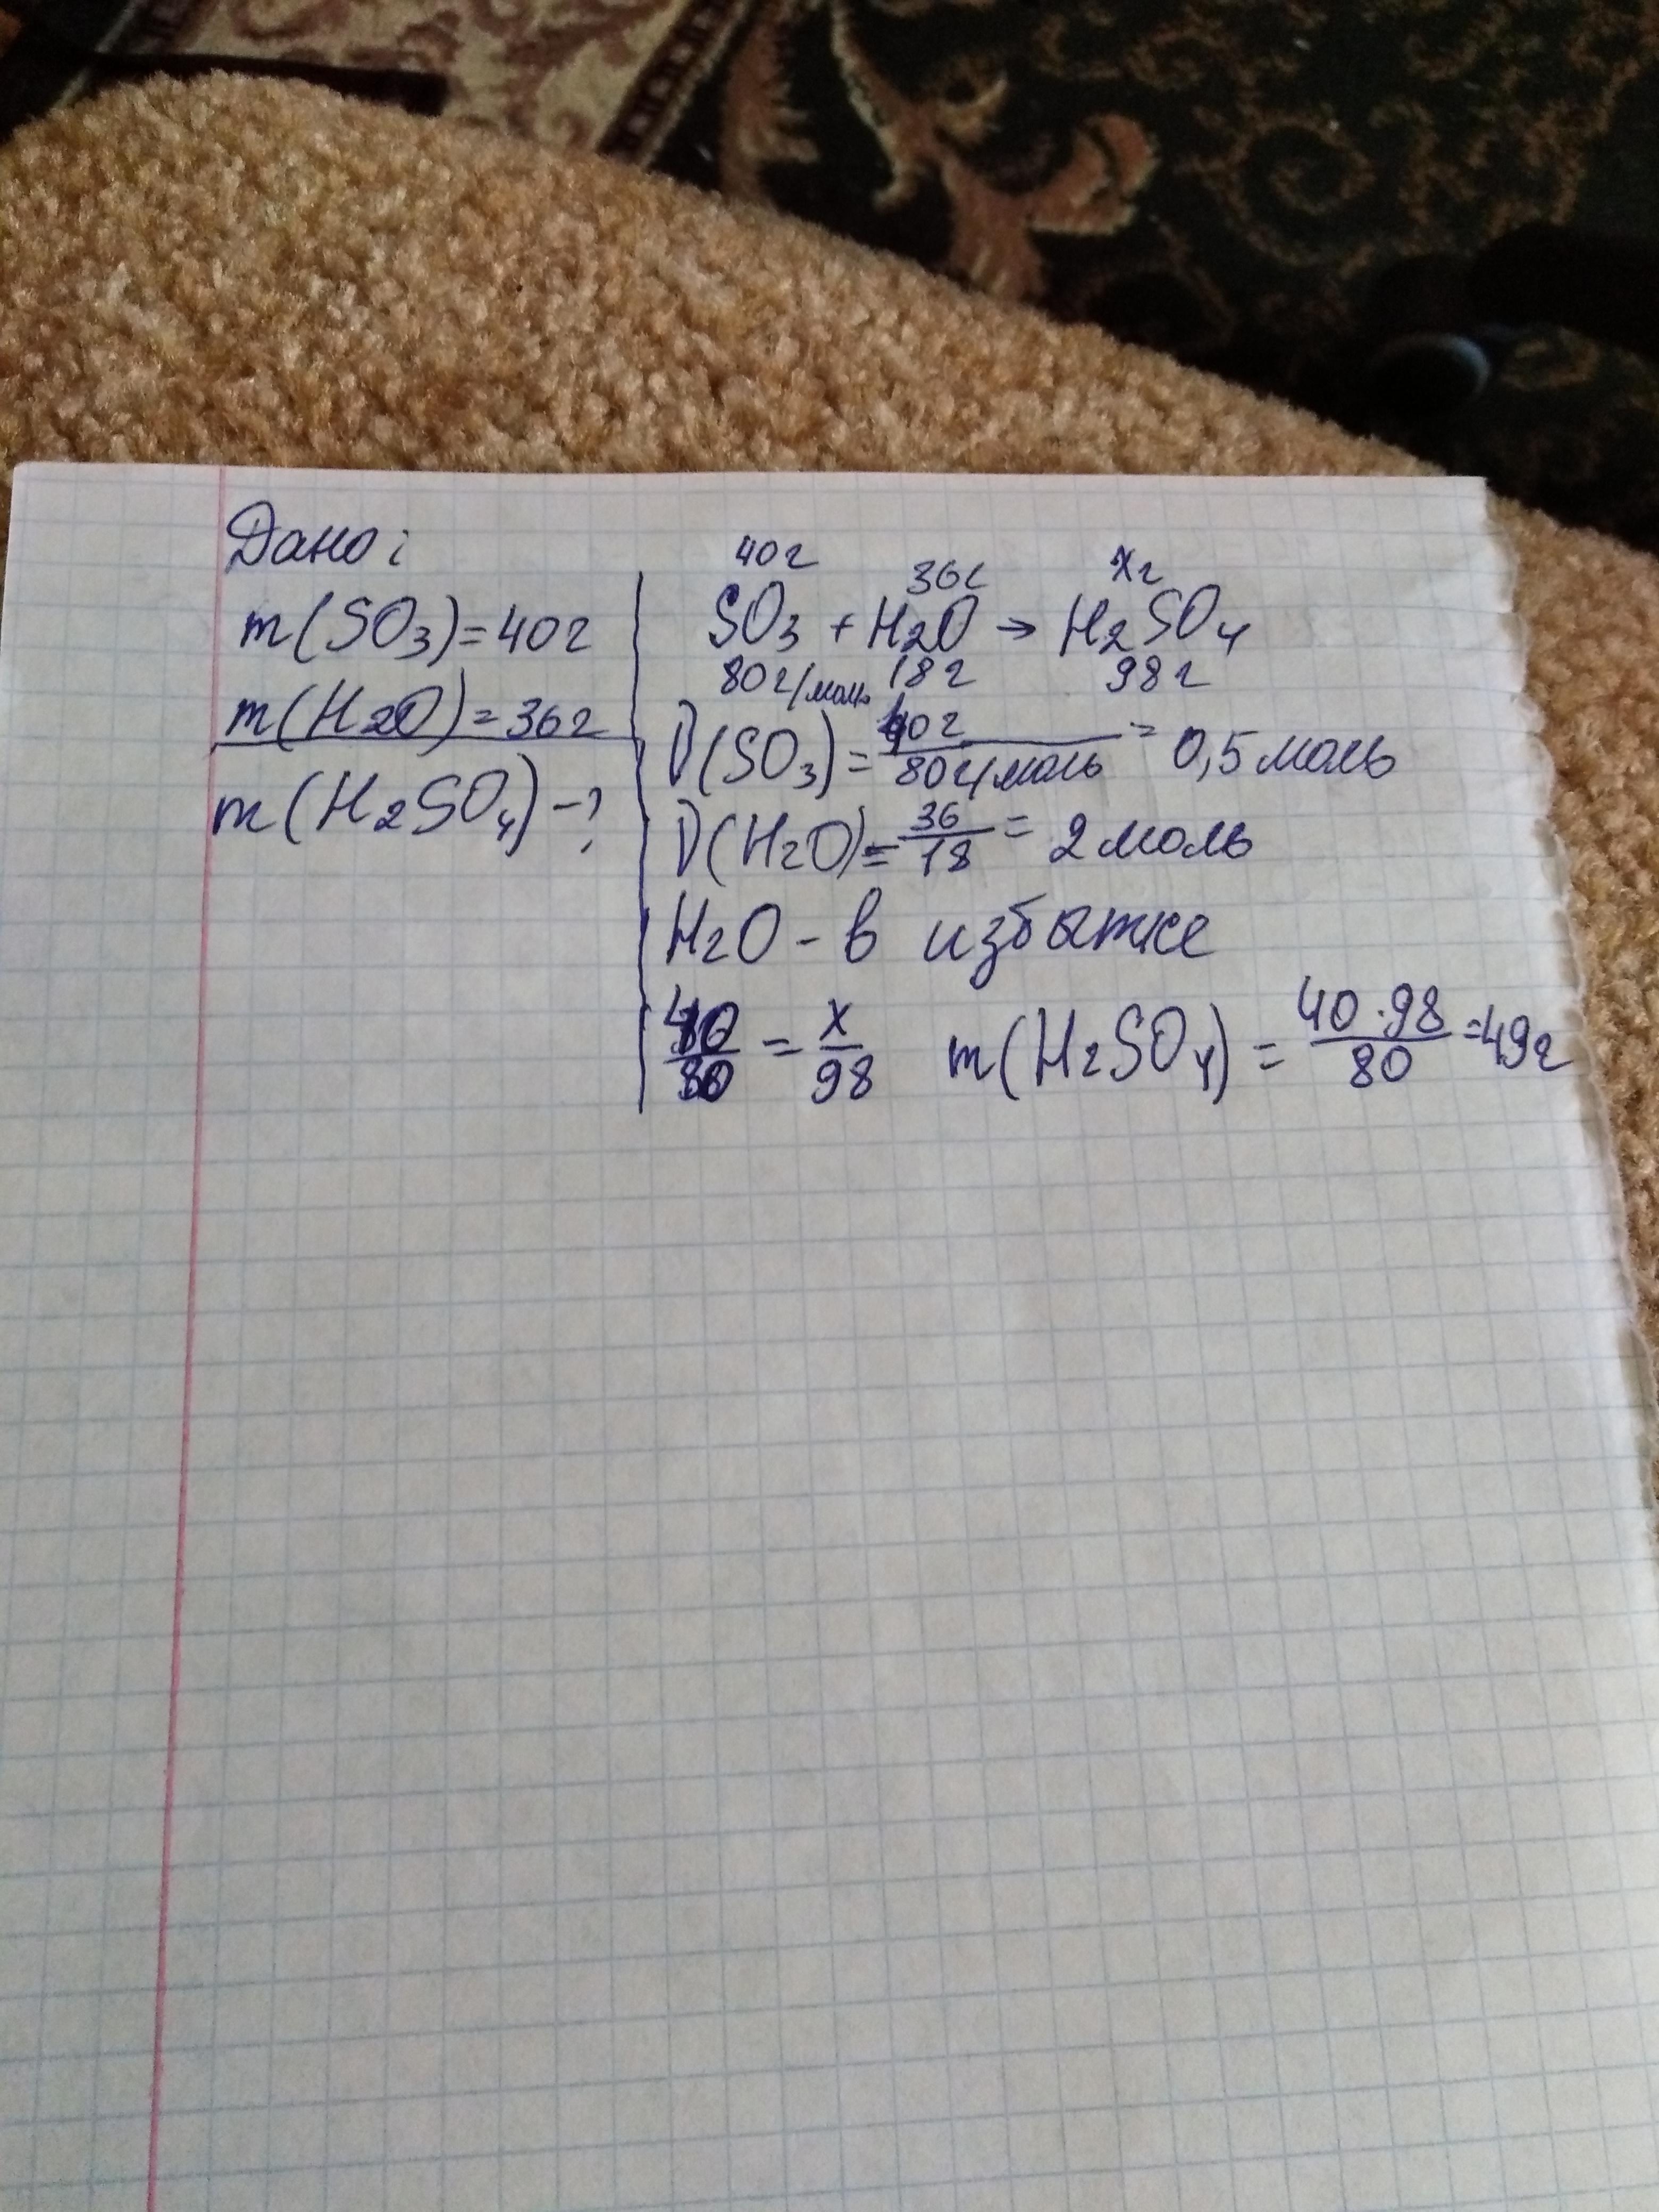 Дано:
m(SO3)=40г
m(H2O)=36г
m(H2SO4)-?
40г 36г xг
SO3 + H2O → H2SO4
80г/моль 18г 98г
ν(SO3)= 40г/80г/моль = 0,5 моль
ν(H2O)= 36/18 = 2 моль
H2O - в избытке
40/80 = x/98 m(H2SO4) = 40·98/80 =49г